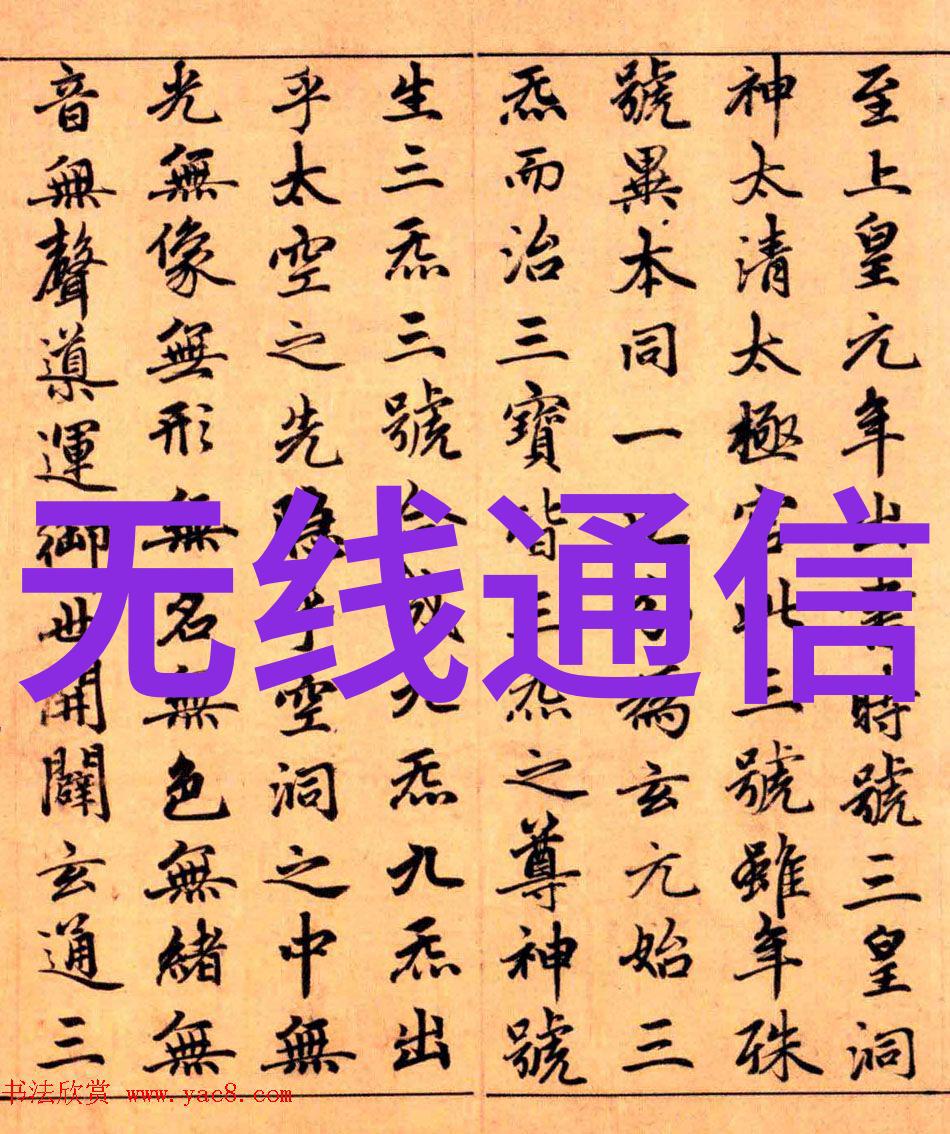 至上皇元年出書時號三皇洞
神太清太極宮此三號雖年殊
號異本同一也分為玄元始三
炁而治三寶皆三炁之尊神號
生三炁三號合成九炁九炁出
乎太空之先隱乎空洞之中無
光無像無形無名無色無緒無
音無聲導運御世開闢玄通三
无线通信
书法欣赏 www.yac8.com